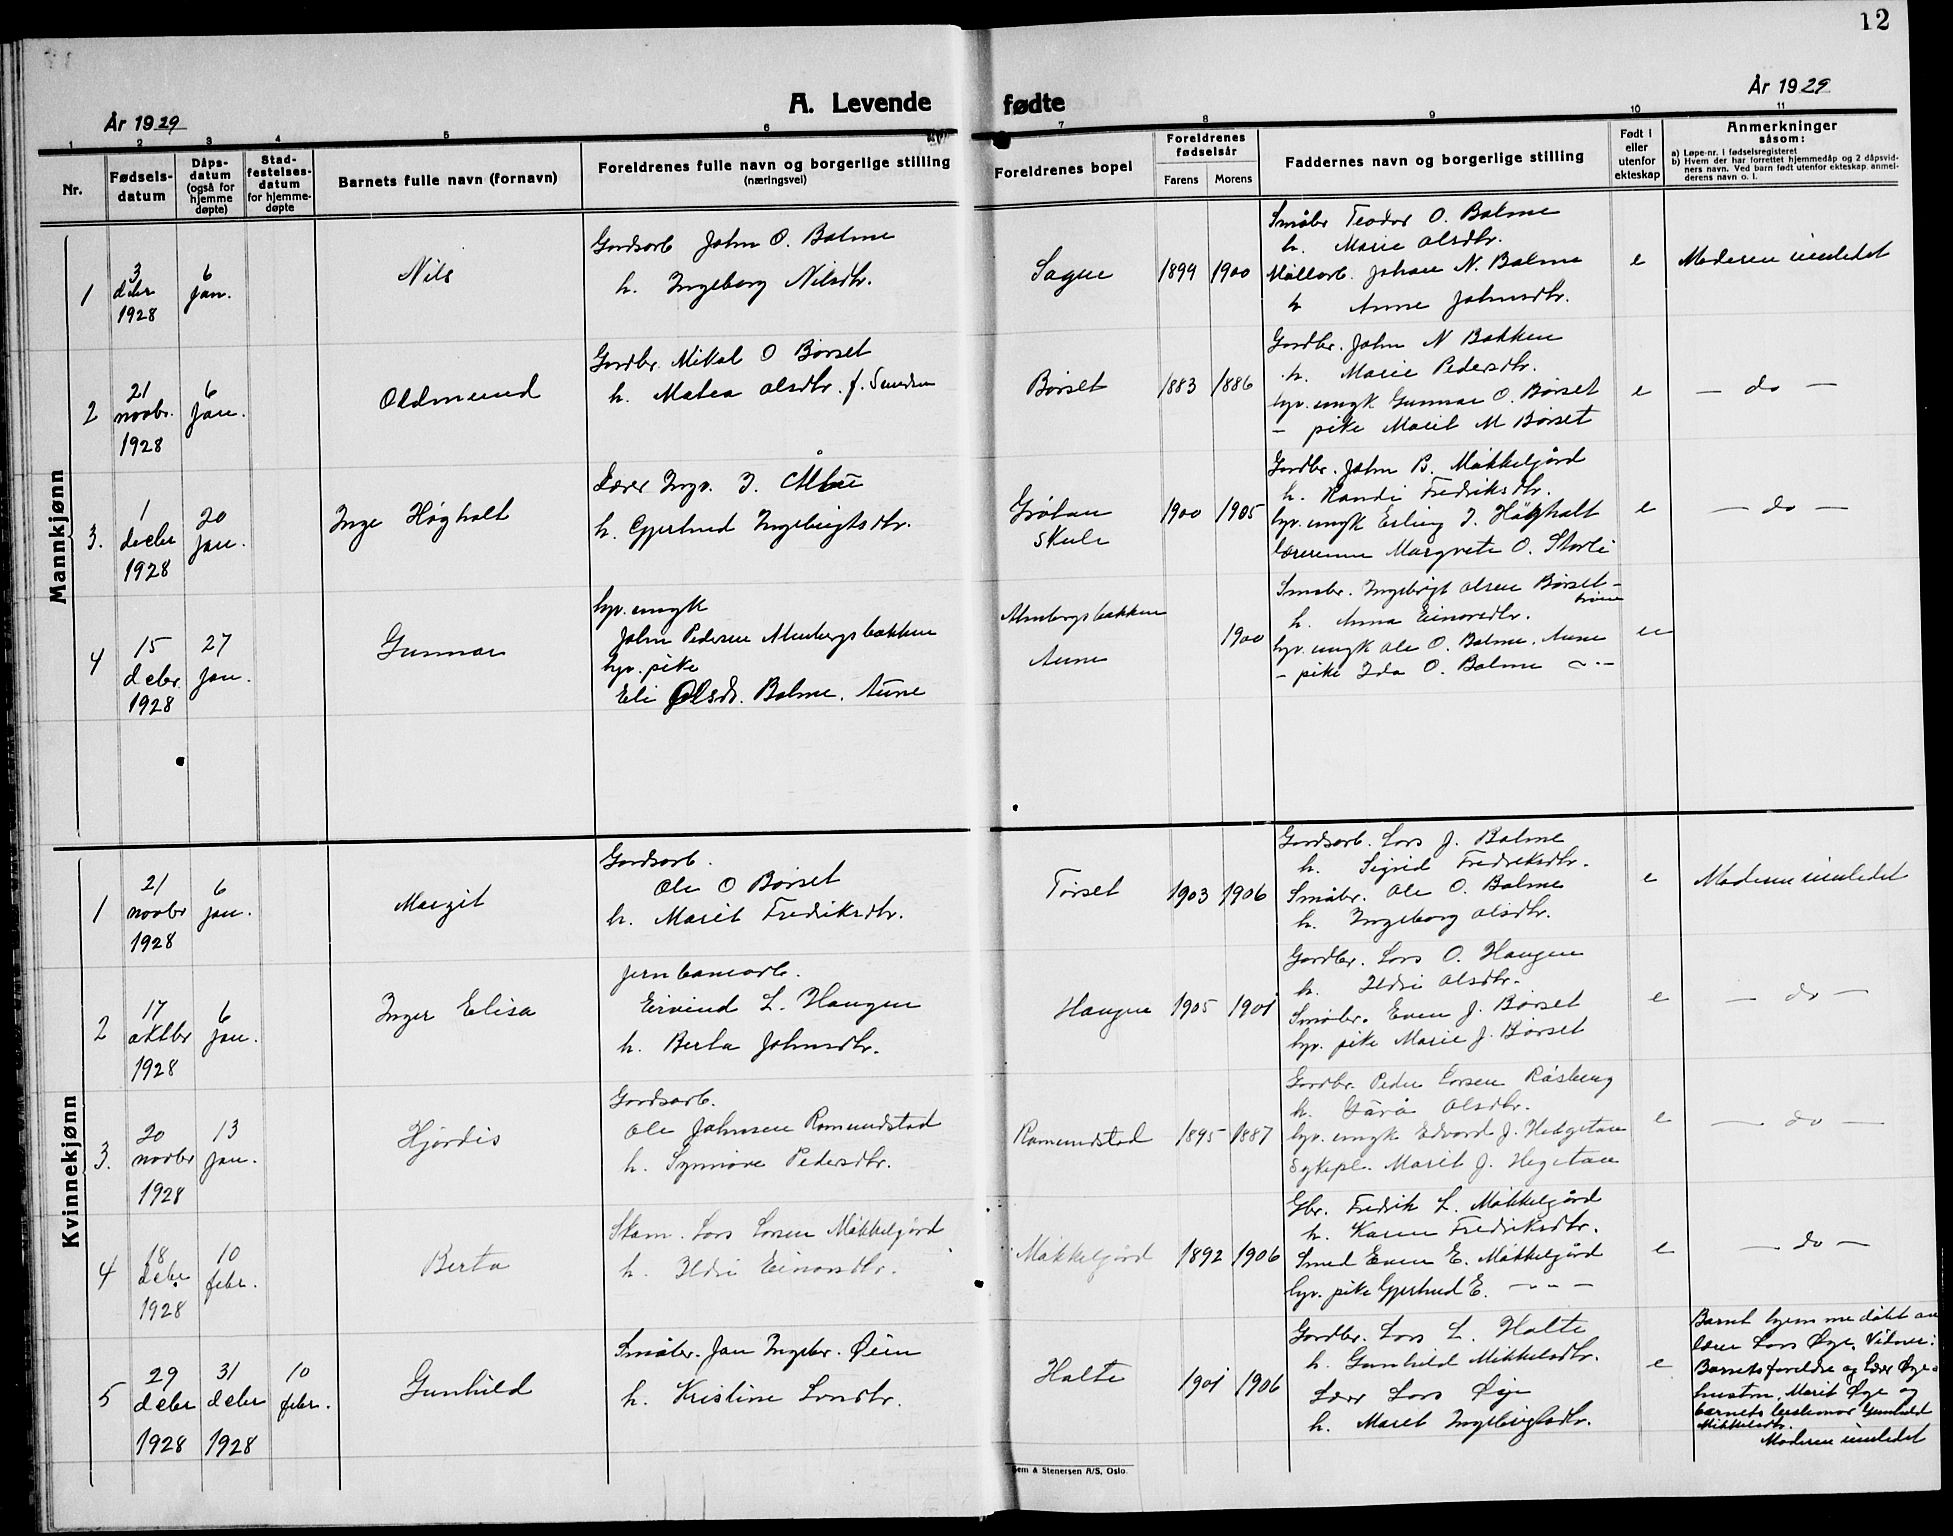 12
A. Levende fødte
År 1929
År 1929
1 2 3 4 5 6 7 8 9 10 11
Nr.
Fødsels-
datum
Dåps-
datum
(også for
hjemme
døpte)
Stad-
festelses-
datum
for hjemme-
døpte
Barnets fulle navn (fornavn)
Foreldrenes fulle navn og borgerlige stilling
(næringsvei)
Foreldrenes bopel
Foreldrenes
fødselsår
Farens Morens
Faddernes navn og borgerlige stilling
Født i
eller
utenfor
ekteskap
Anmerkninger
såsom:
a) Løpe-nr. i fødselsregisteret
b) Hvem der har forrettet hjemmedåp og 2 dåpsvid-
ners navn. Ved barn født utenfor ekteskap anmel-
derens navn o. l.
Mannkjønn
1
3
debr
1928
6
jan.
Nils
Gardsarb John O. Balme
h. Ingeborg Nilsdtr.
Sagen
1899 1900
Småbr Teodor O. Balme
h. Marie Olsdtr.
Møllarb. Johan N. Balme
h Anne Johnsdtr.
e
Moderen innledet
2
21
novbr.
1928
6
Jan.
Oddmund
Gardbr. Mikal O Børset
h. Matea Olsdtr. f.
Børset
1883 1886
Gardbr. John N Bakken
h. Marie Pedersdtr.
hjv. ungk Gunnar O. Børset
– pike Marit M Børset
e
— do —
3.
1
decbr
1928
20
jan.
Inge Høghalt
Lærer Ingv. J. Albu
h. Gjertrud Ingebrigtsdtr.
Grøtan
Skule
1900 1905
Gardbr. John B. Mikkelgård
h. Randi Fredriksdtr.
hjv. ungk Erling J. Høghalt
lærerinne Margrete O. Storli
e
— do —
4
15
debr.
1928
27
jan.
Gunnar
hjv. ungk
John Pedersen Almbergsbakken
hjv. pike
Eli Olsdt. Balme. Aune
Almbergsbakken
Aune
1900
Småbr. Ingebrigt Olsen Børset-
h. Anna Einarsdtr.
hjv. ungk Ole O. Balme. Aune
– pike Ida O. Balme ~ - -
ue
Kvinnekjønn
1
21
novbr
1928
6
jan.
Margit
Gardsarb.
Ole O Børset
h. Marit Fredriksdtr.
Tørset
1903 1906
Gardsarb. Lars J. Balme
h. Sigrid Fredriksdtr.
Småbr. Ole O. Balme
h. Ingeborg Olsdtr.
e
Moderen innledet
2
17
oktbr
1928
6
jan.
Inger Elisa
Jernbanearb.
Eivind L. Haugen
h. Berta Johnsdtr.
Haugen
1905 1901
Gardbr. Lars O. Haugen
h. Ildri Olsdtr.
Småbr. Even J. Børset
hjv. pike Marie J. Børset
e
— do —
3.
20
novbr
1928
13
jan.
Hjørdis
Gardsarb.
Ole Johnsen Romundstad
h. Synnøve Pedersdtr.
Romundstad
1895 1887
Gardbr. Peder Larsen Råsberg
h. Olsdtr.
hjv. ungk Edvard J. Helgetun
Sykepl. Marit J. Hegetun
e
— do —
4
18
debr
1928
10
febr.
Berta
Skom. Lars Larsen Mikkelgård
h. Ildri Einarsdtr.
Mikkelgård
1892 1906
Gbr. Fredrik L. Mikkelgård
h. Karen Fredriksdtr.
Smed Even E. Mikkelgård
hjv. pike Gjertrud E. — - —
e
— do —
5
29
debr
1928
31
debr
1928
10
febr.
Gunhild
Småbr. Jan Ingebr. Øien
h. Kristine Larsdtr.
Halte
1901 1906
Gardbr. Lars L. Halte
h. Gunhild Mikkelsdtr.
Lærer Lars Øye
h. Marit Ingebrigtsdtr.
e
Barnet hjemmedøbt av
lærer Lars Øye. Vitner:
Barnets foreldre og lærer Øyes
hustru, Marit Øye og
barnets bestemor Gunhild
Mikkelsdtr.
Moderen innledet
Sem & Stenersen A/S, Oslo.